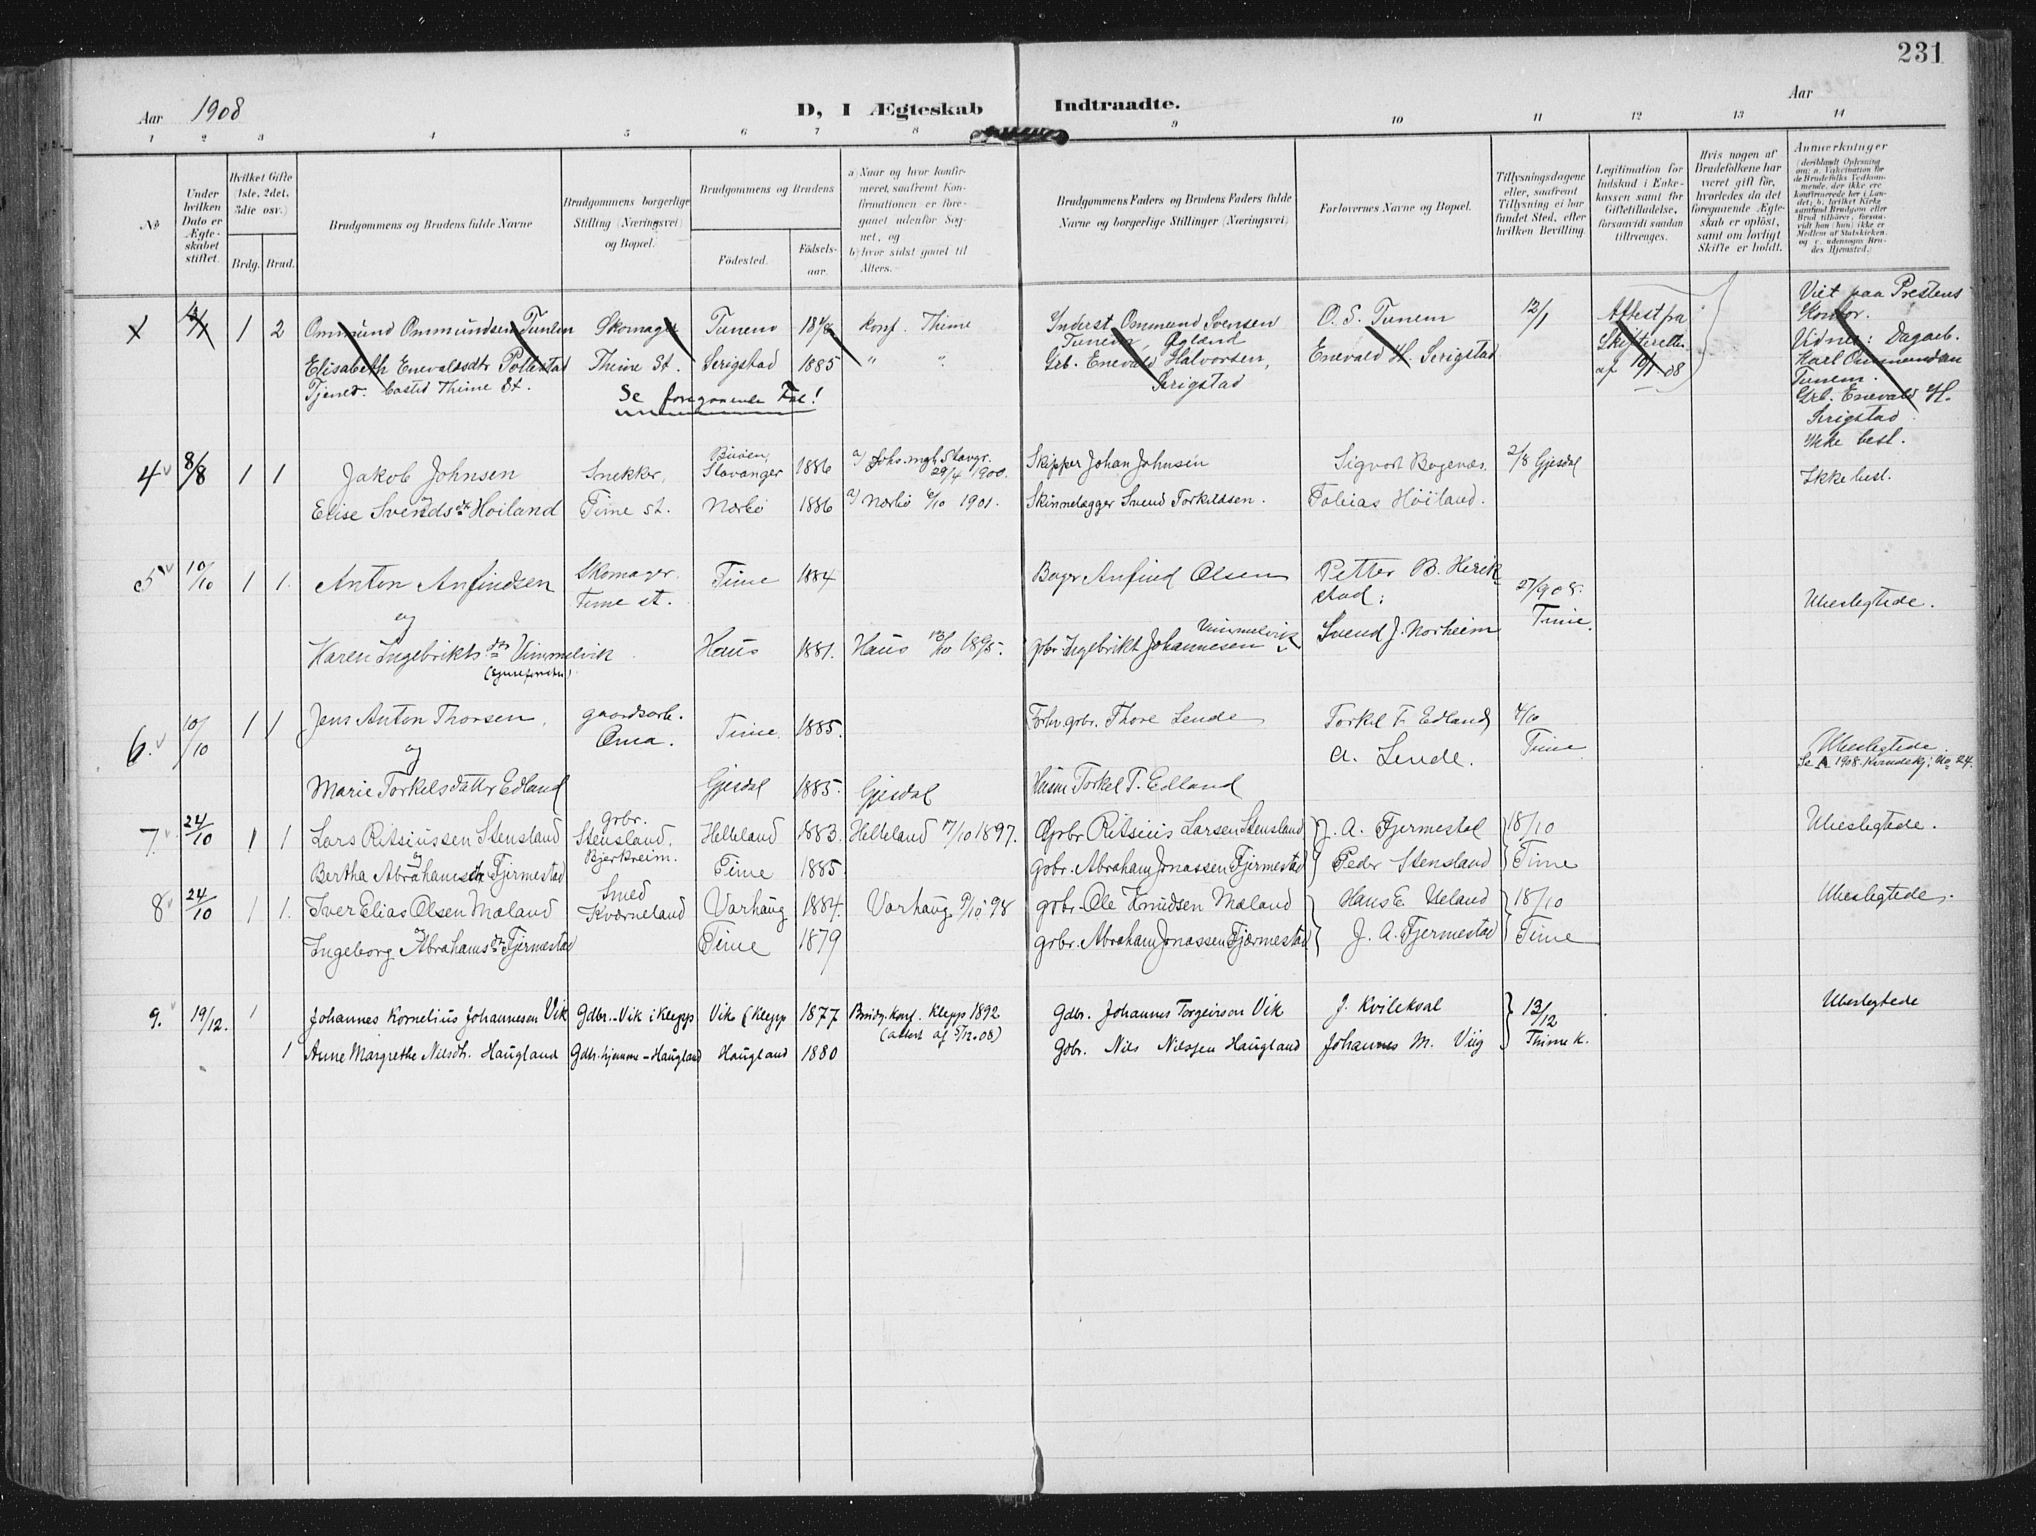 231
Aar 1908
D, I Ægteskab Indtraadte.
Aar
1 2 3 4 5 6 7 8 9 10 11 12 13 14
No
Under hvilken Dato er Ægteskabet stiftet.
Hvilket Gifte (1ste, 2det, 3die osv.)
Brdg. Brud.
Brudgommens og Brudens fulde Navne
Brudgommens borgerlige Stilling (Næringsvei) og Bopæl.
Brudgommens og Brudens
Födested. Födselsaar.
a) Naar og hvor konfirmeret, saafremt Konfirmationen er foregaaet udenfor Sognet, og
b) hvor sidst gaaet til Alters.
Brudgommens Faders og Brudens Faders fulde Navne og borgerlige Stillinger (Næringsvei)
Forlovernes Navne og Bopæl.
Tillysningsdagene eller, saafremt Tillysning ei har fundet Sted, efter hvilken Bevilling
Legitimation for Indskud i Enkekassen samt for Giftetilladelse, forsaavidt saadan tiltrænges.
Hvis nogen af Brudefolkene har været gift før, hvorledes da det foregaaende Ægteskab er opløst, samt om lovligt Skifte er holdt.
Anmerkninger
Ommund Ommundsen Tunem Skomager Tunem konf. Thime Inderst Ommund Svensen O. S. Tunem 12/1 Attest fra Viet paa Prestens Kontor.
1 2 Tunem, Skifteretten Vidner: Dagarb.
Elisabeth Enevaldsdtr Pollestad Thime St. Serigstad 1885 " " Grb. Enevald Halvorsen, Enevald H. Serigstad af 10/1 08 Karl Ommundsen Tunem.
Serigstad
Tjenes. bosted Thime St. Se foregaaende Fol! Grb. Enevald H. Serigstad
Ikke besl.
4 8/8 1 1 Jakob Johnsen Snekker, Buøen, Stavanger 1886 a) Johs. mgh. Stavgr. 29/4 1900. Skipper Johan Johnsen Sigvart Bogenæs 2/8 Gjesdal Ikke besl.
og
Elise Svendsdtr Høiland Time st. Nærbø 1886 a) Nærbø 6/10 1901. Skinnelægger Svend Torkildsen. Tobias Høiland.
5 10/10 1 1. Anton Anfindsen Skomager. Time st. Time 1884 Bager Anfind Olsen Petter B. Herikstad. 27/9 08. Time. Ubeslegtede.
og
Karen Ingebriktsdtr Vimmelvik Haus 1881. Haus 13/10 1895. gbr. Ingebrikt Johannesen Vimmelvik Svend J. Norheim
6. 10/10 1 1 Jens Anton Thorsen, gaardsarb. Oma. Time. 1885. Forhv. grbr. Thore Lende Torkel T. Edland 4/10 Time Ubeslegtede.
og A. Lende. Se A 1908. Kvindekj: No 24.
Marie Torkelsdatter Edland Gjesdal 1885. Gjesdal Husm Torkel T. Edland
7. 24/10 1 1 Lars Ritsiussen Stensland grbr. Stensland. Bjerkreim. Helleland 1883. Helleland 17/10 1897. Grbr. Ritsius Larsen Stensland J. A. Fjermestad 18/10 Ubeslegtede.
og
Bertha Abrahamsdtr Fjermestad Time 1885. gbr. Abraham Jonassen Fjermestad Peder Stensland Time
8 24/10 1 1. Iver Elias Olsen Mæland Smed Kværneland Varhaug 1884. Varhaug 9/10 98 grbr. Ole Knudsen Mæland Hans E. Ueland 18/10 Ubeslegtede.
og
Ingeborg Abrahamsdtr Fjermestad Time 1879 grbr. Abraham Jonassen Fjærmestad J. A. Fjermestad Time
9. 19/12. 1 Johannes Kornelius Johannesen Vik Gdbr. - Vik i Klepp Vik i Klepp 1877 Brudg. konf. Klepp 1892 Gdbr. Johannes Torgeirson Vik J. Kvileksal 13/12 Ubeslegtede
(attest af 5/12.08)
1 Anne Margrethe Nilsdtr. Haugland Gdbr. hjemme - Haugland Haugland 1880 Gdbr. Nils Nilssen Haugland Johannes M. Viig Thime K.